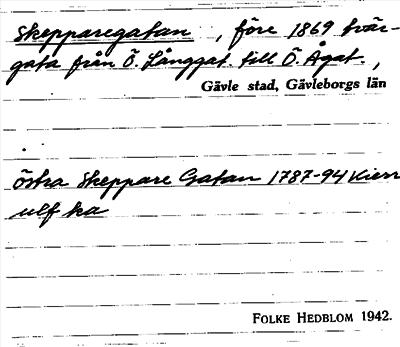 Skepparegatan , före 1869 tvär-
gata från Ö. Långgat. till Ö. Ågat.,
Gävle stad, Gävleborgs län
Östra Skeppare Gatan 1787-94 Kierr
ulf ka
FOLKE HEDBLOM 1942.